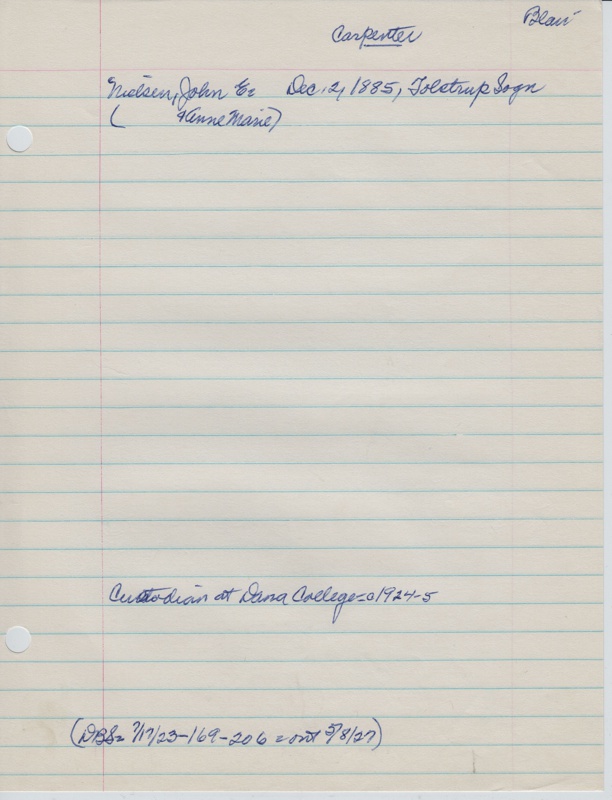 Blair
Carpenter
Nielsen, John E= Dec. 2, 1885, Tolstrup Sogn
( & Anne Marie)
Custodian at Dana College = 1924-5
(DBS= 7/17/23-169-206 = out 5/8/27)